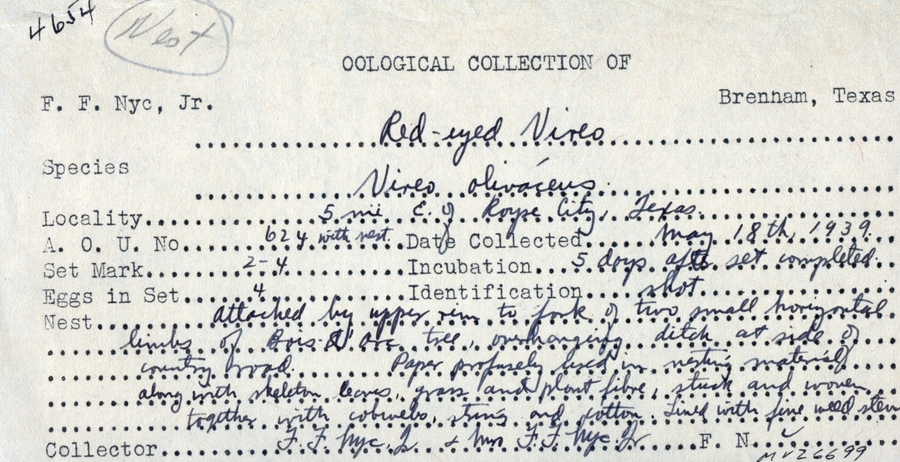 4654
Nest
OOLOGICAL COLLECTION OF
F. F. Nyc, Jr. Brenham, Texas
Red-eyed Vireo
Species
Vireo olivaceus
Locality 5 mi E. of Royse City, Texas
A. O. U. No. 624 with nest. Date Collected May 18th, 1939
Set Mark 2-4 Incubation 5 days after set completed
Eggs in Set 4 Identification shot
Nest Attached by upper rim to fork of two small horizontal
limbs of Bois D'Arc tree, overhanging ditch at side of
country road. Paper profusely used in nesting material
along with skeleton leaves, grass and plant fibre, stuck and woven
together with cobwebs, string and cotton. Lined with fine weed stem
Collector F. F. Nyc Jr & Mrs F. F. Nyc Jr F. N.
MVZ6699